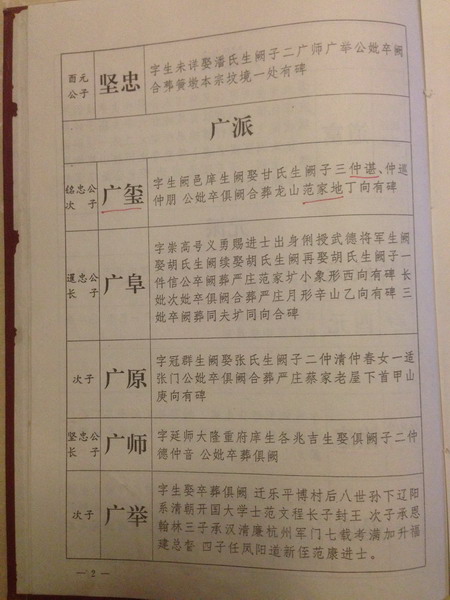 酉元公子
坚忠
字生未详娶潘氏生阙子二广师广举公妣卒阙
合葬簧墩本宗坟境一处有碑
广派
佲忠公次子
广玺
字生阙邑庠生阙娶甘氏生阙子三仲谌、仲巡
仲朋 公妣卒俱阙合葬龙山范家地丁向有碑
暹忠公长子
广阜
字崇高号义勇赐进士出身例授武德将军生阙
娶胡氏生阙续娶胡氏生阙再娶胡氏生阙子一
件信公卒阙葬严庄范家圹小象形西向有碑 长
妣次妣卒俱阙合葬严庄月形辛山乙向有碑 三
妣卒阙葬同夫圹同向合碑
次子
广原
字冠群生阙娶张氏生阙子二仲清仲春女一适
张门公妣卒俱阙合葬严庄蔡家老屋下首甲山
庚向有碑
坚忠公长子
广师
字延师大隆重府庠生各兆吉生娶俱阙子二仲
德仲音 公妣卒葬俱阙
次子
广举
字生娶卒葬俱阙 迁乐平博村后八世孙下辽阳
系清朝开国大学士范文程长子封王 次子承恩
翰林三子承汉清廉杭州军门七载考满加升福
建总督 四子任凤阳道新侄范康进士。
— 2 —